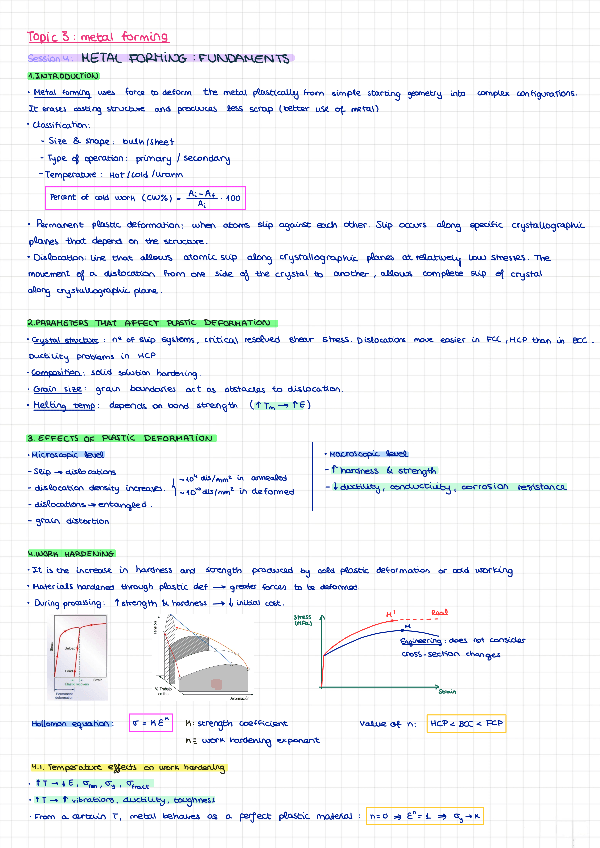 Topic 3: metal forming
Session 4: METAL FORMING: FUNDAMENTS
1. INTRODUCTION
• Metal forming uses force to deform the metal plastically from simple starting geometry into complex configurations.
It erases casting structure and produces less scrap (better use of metal)
• Classification:
- Size & shape: bulk/sheet
- Type of operation: primary / secondary
- Temperature: Hot/cold/warm
Percent of cold work (CW%) = (Ai - Af)/Ai · 100
• Permanent plastic deformation: when atoms slip against each other. Slip occurs along specific crystallographic
planes that depend on the structure.
• Dislocation: line that allows atomic slip along crystallographic planes at relatively low stresses. The
movement of a dislocation from one side of the crystal to another, allows complete slip of crystal
along crystallographic plane.
2. PARAMETERS THAT AFFECT PLASTIC DEFORMATION
• Crystal structure: nº of slip systems, critical resolved shear stress. Dislocations move easier in FCC, HCP than in BCC.
Ductility problems in HCP
• Composition: solid solution hardening.
• Grain size: grain boundaries act as obstacles to dislocation.
• Melting temp: depends on bond strength (↑Tm → ↑E)
3. EFFECTS OF PLASTIC DEFORMATION
• Microscopic level
- Slip → dislocations
- dislocation density increases. { ~10⁴ dis/mm² in annealed
~10¹⁰ dis/mm² in deformed
- dislocations → entangled.
- grain distortion
• Macroscopic level
- ↑ hardness & strength
- ↓ ductility, conductivity, corrosion resistance
4. WORK HARDENING
• It is the increase in hardness and strength produced by cold plastic deformation or cold working
• Materials hardened through plastic def → greater forces to be deformed
• During processing: ↑ strength & hardness → ↓ initial cost.
Stress
(MPa)
M'
Real
M
Engineering: does not consider
cross-section changes
Strain
Hollomon equation: σ = K ε^n
K: strength coefficient
n: work hardening exponent
Value of n: HCP < BCC < FCP
4.1. Temperature effects on work hardening
• ↑T → ↓ E, σm, σy, σfract
• ↑T → ↑ vibrations, ductility, toughness
• From a certain T, metal behaves as a perfect plastic material: n=0 ⇒ ε^n = 1 ⇒ σy → K